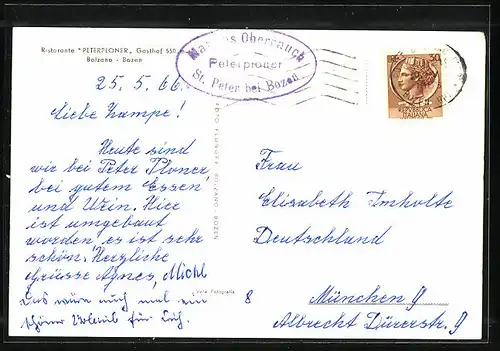 Ristorante "PETERPLONER" Gasthof 550
Bolzano - Bozen
Oberrauch
Peterploner
St. Peter bei Bozen
25.5.66.
Liebe Lampe!
Heute sind
wir bei Peter Ploner
bei gutem Essen
und Wein. Hier
ist umgebaut
worden, es ist sehr
schön. Herzliche
Grüsse Agnes, Michl
Das wäre auch mal ein
schöner Urlaub für Euch.
BOLZANO - BOZEN
Vera Fotografia
8
REPUBBLICA
ITALIANA
Frau
Elisabeth Imholte
Deutschland
München 9
Albrecht Dürerstr. 9